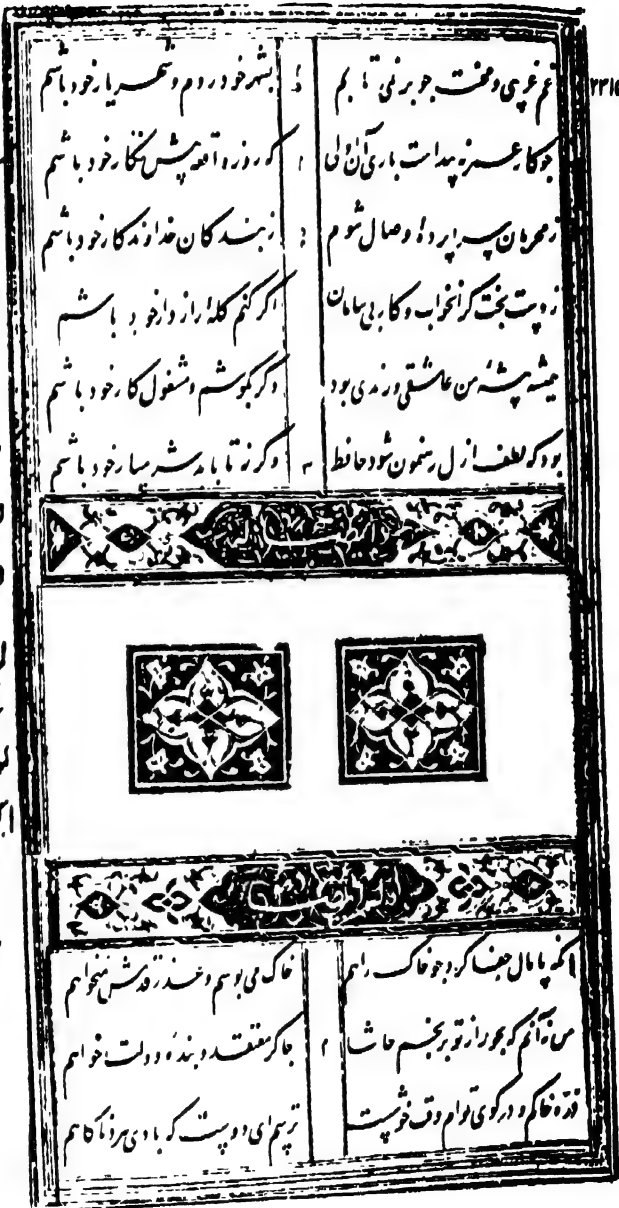 غم غریبی و محنت چو برنمی تابم بشهر خود روم و شهریار خود باشم
چو کار عمر نه پیداست باری آن اولی که روز واقعه پیش نگار خود باشم
ز محرمان سراپرده وصال شوم ز بندگان خداوندکار خود باشم
ز دست بخت گران خواب و کار بی سامان اگر کنم گله راز دار خود باشم
همیشه پیشه من عاشقی و رندی بود دگر بکوشم و مشغول کار خود باشم
بود که لطف ازل رهنمون شود حافظ وگرنه تا بابد شرمسار خود باشم
آنکه پامال جفا کرد چو خاک راهم خاک می بوسم و عذر قدمش میخواهم
من نه آنم که بجور از تو برنجم حاشا چاکر معتقد و بنده دولتخواهم
ذره خاکم و در کوی توام وقت خوشست ترسم ای دوست که بادی ببرد ناگاهم